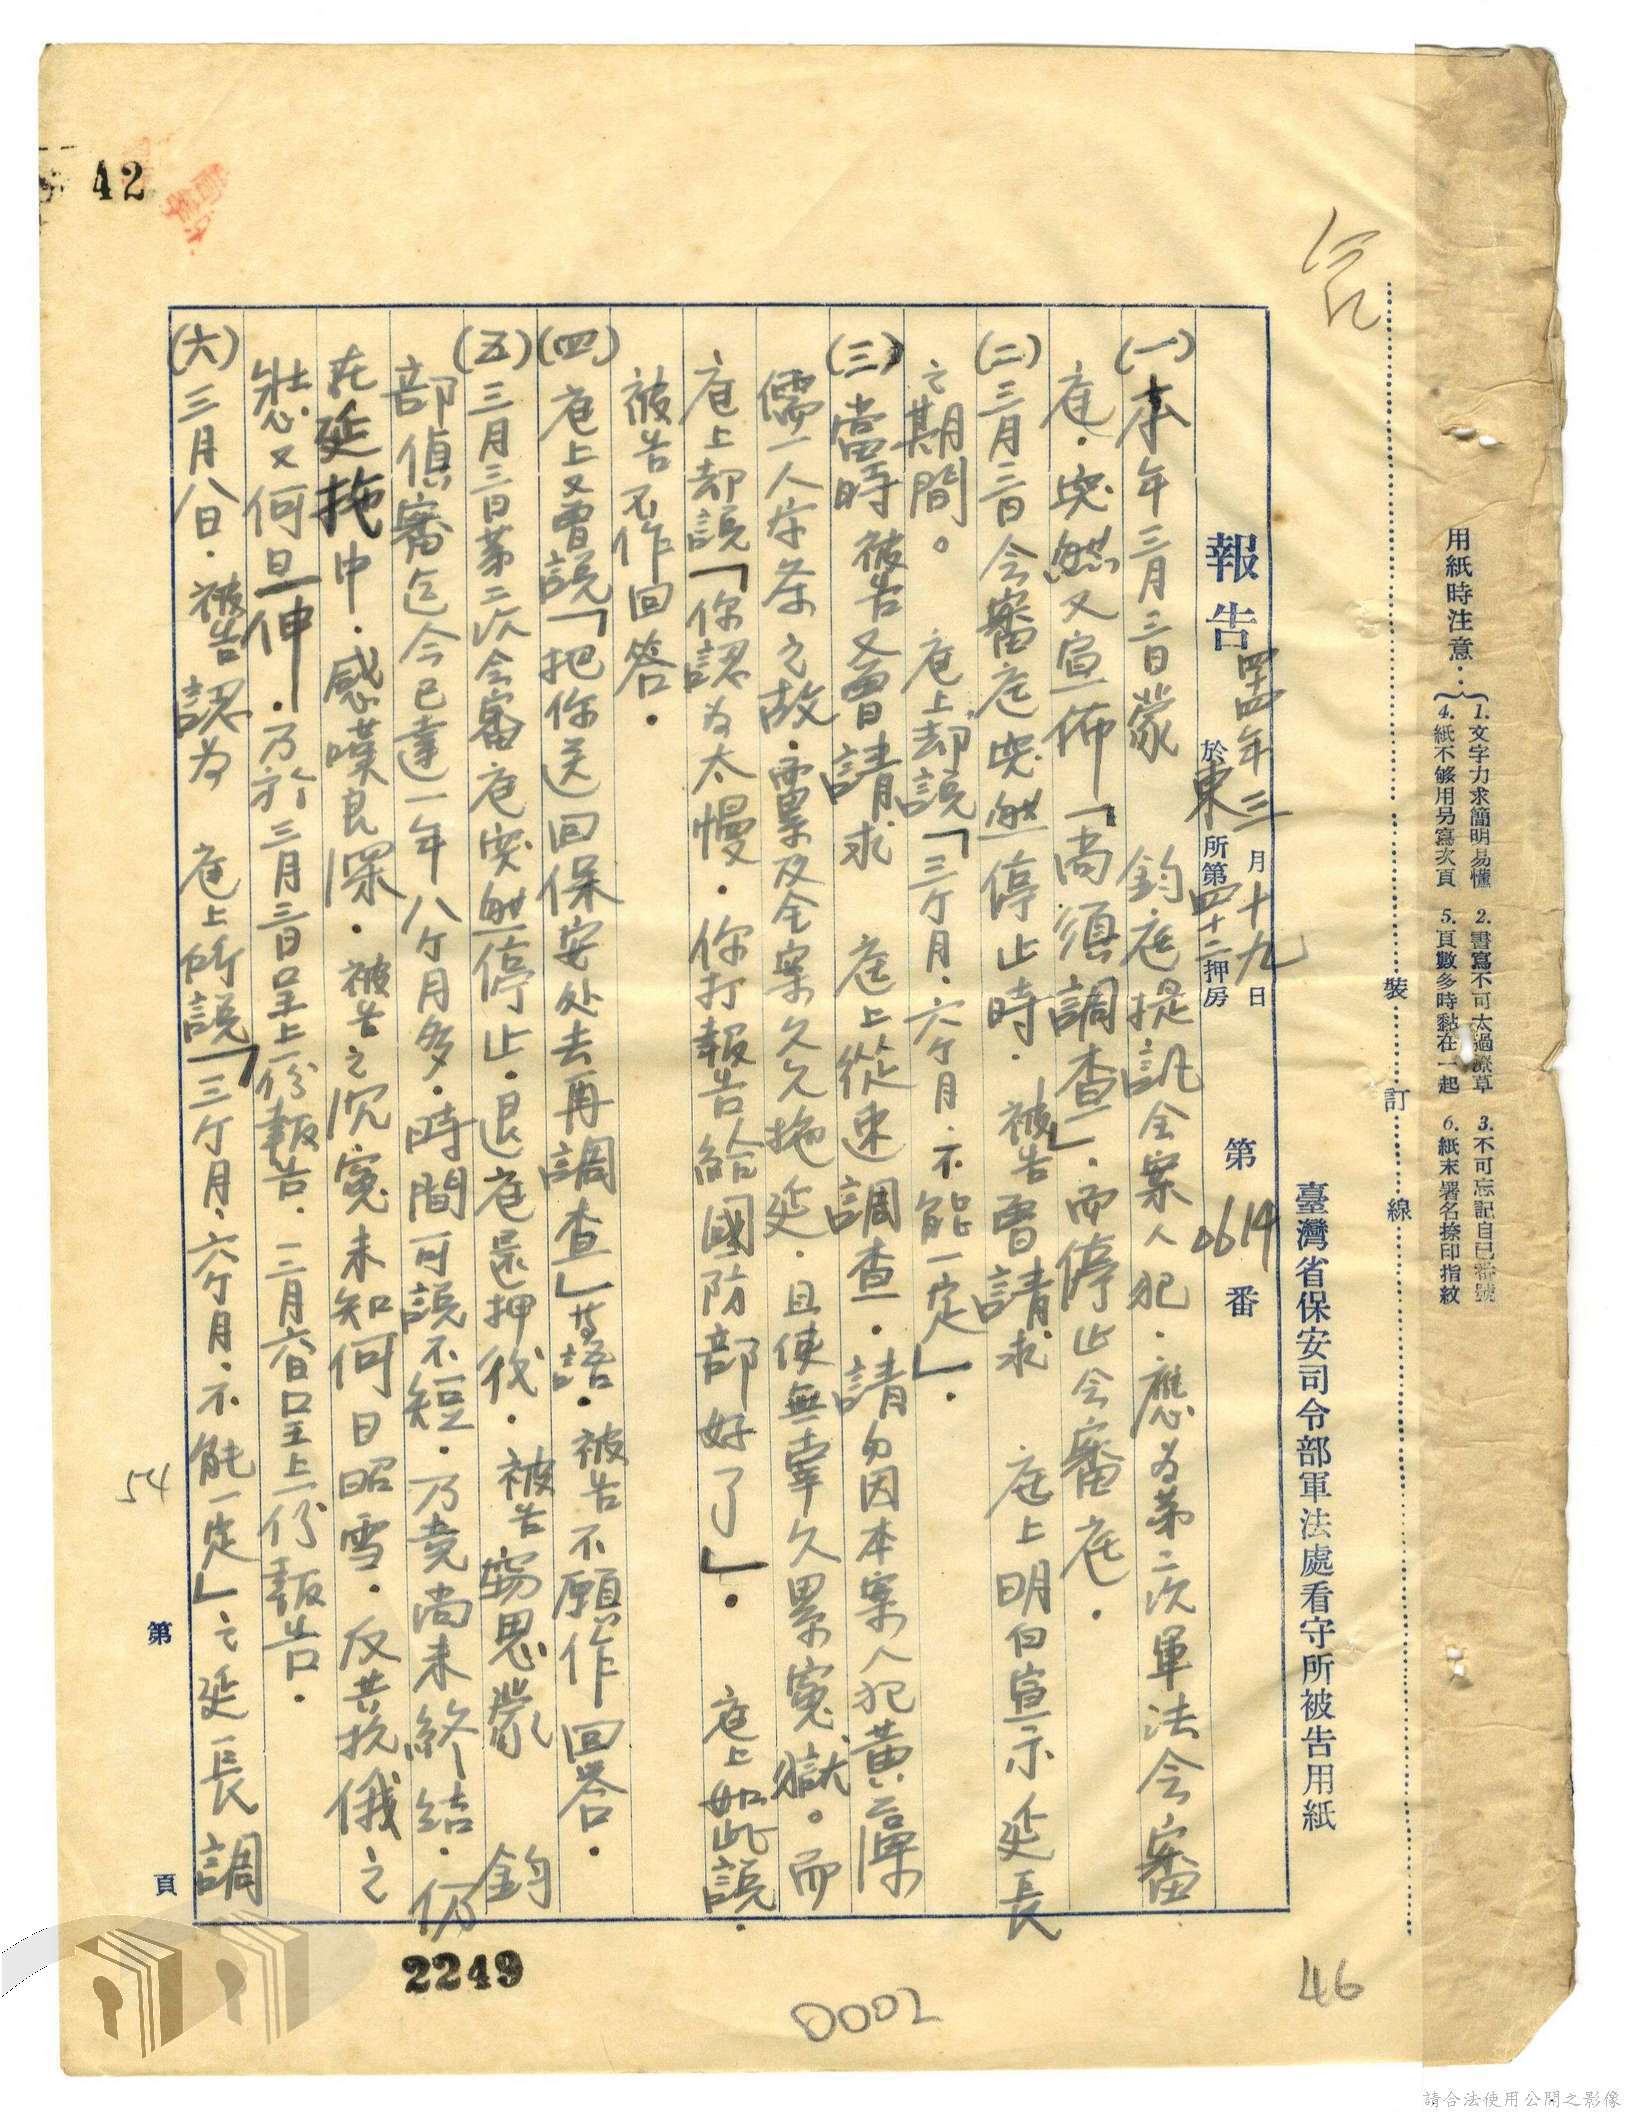 用紙時注意：
1. 文字力求簡明易懂 2. 書寫不可太過潦草 3. 不可忘記自己番號
4. 紙不够用另寫次頁 5. 頁數多時黏在一起 6. 紙末署名捺印指紋
裝訂線
臺灣省保安司令部軍法處看守所被告用紙
報告 四十四年三月十九日
於東所第四十二押房
第0614番
(一)本年三月三日蒙 鈞庭提訊全案人犯．應為第二次軍法会審
庭．突然又宣佈「尚須調查」．而停止会審庭．
(二)三月三日会審庭突然停止時．被告曾請求 庭上明白宣示延長
之期間。 庭上却說「三个月．六个月．不能一定」．
(三)當時被告又曾請求 庭上從速調查．請勿因本案人犯黃
儒一人 之故．累及全案久久拖延．且使無辜久累寃獄。而
庭上却說「你認為太慢．你打報告給國防部好了」． 庭上如此說．
被告不作回答．
(四)庭上又曾說「把你送回保安处去再調查」等語．被告不願作回答．
(五)三月三日第二次会審庭突然停止．退庭還押後．被告竊思蒙 鈞
部偵審迄今已達一年八个月多．時間可說不短．乃竟尚未終結．仍
在延拖中．感嘆良深．被告之沉寃未知何日昭雪．反共抗俄之
壯志又何日伸．乃於三月三日呈上一份報告．三月六日呈上一份報告．
(六)三月八日．被告認為 庭上所說「三个月．六个月．不能一定」之延長調
第 頁
42
54
46
2249
0002
請合法使用公開之影像